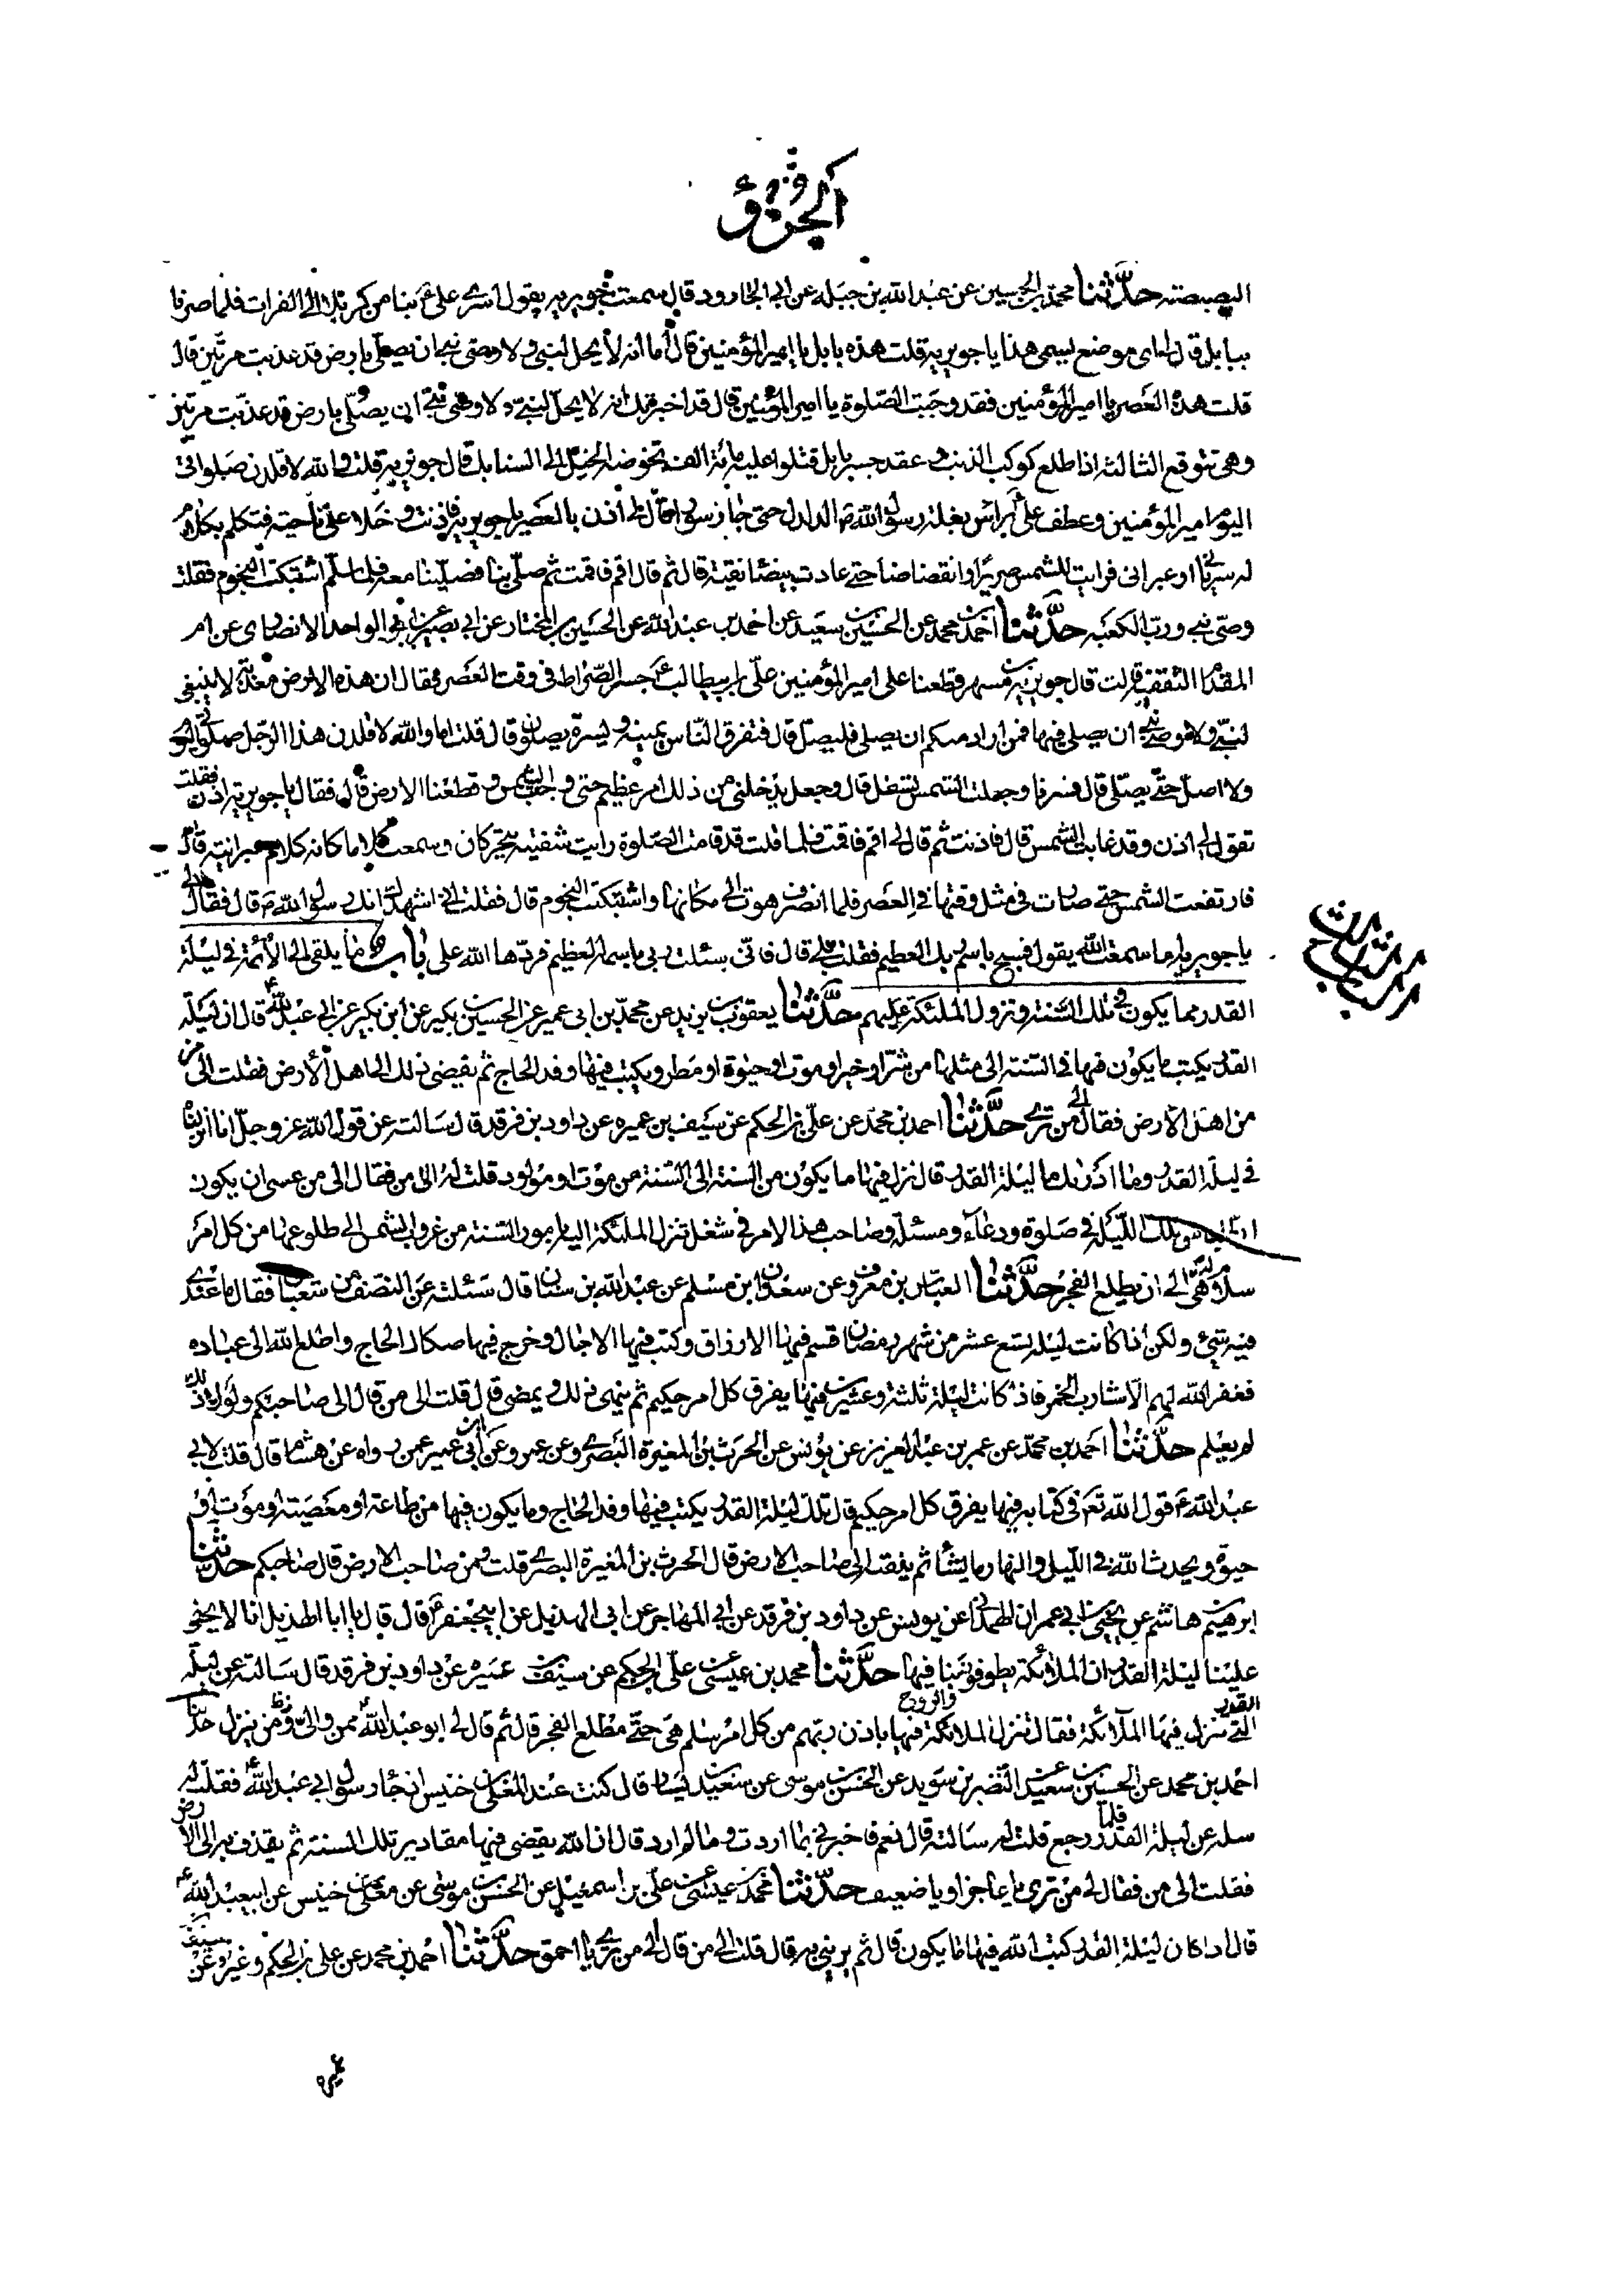 الجزؤ
البصبصته حدّثنا محمد بن الحسين عن عبد الله بن جبله عن ابى الجارود قال سمعت جويريه يقول اسرى علىّ ع بنا من كربلا الى الفرات فلما صرنا
ببابل قال لى اى موضع يسمى هذا يا جويريه قلت هذه بابل يا امير المؤمنين قال اما انه لا يحل لنبى ولا وصى نبى ان يصلى بارض قد عذبت مرتين قال
قلت هذه العصر يا امير المؤمنين فقد وجبت الصّلوة يا امير المؤمنين قال قد اخبرتك انه لا يحلّ لنبىّ ولا وصى نبىّ ان يصلّى بارض قد عذّبت مرتين
وهى تتوقع الثالثه اذا طلع كوكب الذنب و عقد جسر بابل قتلوا عليه مائة الف تخوضه الخيل الى السنابك قال جويريه قلت والله لاقلدن صلواتى
اليوم امير المؤمنين وعطف علىّ براس بغلة رسول الله ص الدلدل حتى جاز سورا قال لى اذن بالعصر يا جويريه فاذنت وخلا على ناحية فتكلم بكلام
له سريانى او عبرانى فرايت للشمس صريرا وانقضاضا حتى عادت بيضا نقية قال ثم قال اقم فاقمت ثم صلّى بنا فصلّينا معه فلما سلّم اشتبكت النجوم فقلت
وصّى نبى وربّ الكعبه حدّثنا احمد بن محمد عن الحسين بن سعيد عن احمد بن عبد الله عن الحسين بن المختار عن ابى بصير عن عبد الواحد الانصارى عن ام
المقدام الثقفيه قالت قال جويريه بن مسهر قطعنا على امير المؤمنين علىّ بن ابيطالب ع جسر الصّراط فى وقت العصر فقال ان هذه الارض معذّبة لا ينبغى
لنبىّ ولا وصىّ نبى ان يصلى فيها فمن اراد منكم ان يصلى فليصلّ قال فتفرق النّاس يمينة ويسرة يصلون قال قلت اما والله لاقلدن هذا الرّجل صلوتى اليوم
ولا اصلّ حتّى يصّلى قال فسرنا وجعلت الشمس تسفل قال وجعل يدخلنى من ذلك امر عظيم حتى وجبت الشمس و قطعنا الارض قال فقال يا جويريه اذن فقلت
تقول لى اذن وقد غابت الشمس قال فاذنت ثم قال لى اقم فاقمت فلما قلت قد قامت الصّلوة رايت شفتيه يتحركان وسمعت كلاما كانه كلام عبرانيّه قال
فارتفعت الشمس حتى صارت فى مثل وقتها فى العصر فلما انصرف هوت الى مكانها واشتبكت النجوم قال فقلت انى اشهد انك وصى رسول الله ص قال فقال لى
يا جويريه اما سمعت الله يقول فسبح باسم ربك العظيم فقلت بلى قال فانى سئلت ربى باسمه العظيم فردّها الله على باب ما يلقى الى الأئمة فى ليلة
القدر مما يكون فى تلك السّنة ونزول الملئكة عليهم حدّثنا يعقوب بن يزيد عن محمّد بن ابى عمير عن الحسين بن بكير عن ابن بكير عن ابى عبد الله ع قال ان ليلة
القدر يكتب ما يكون فيها فى السّنة الى مثلها من شرّ او خير او موت او حيوة او مطر ويكتب فيها وفد الحاج ثم يقضى ذلك الى اهل الأرض فقلت الى من
من اهل الارض فقال الى من ترى حدّثنا احمد بن محمّد عن علىّ بن الحكم عن سيف بن عميره عن داود بن فرقد قال سالته عن قول الله عز وجلّ انا انزلناه
فى ليلة القدر وما ادريك ما ليلة القدر قال نزل فيها ما يكون من السنة الى السّنة من موت او مولود قلت له الى من فقال الى من عسى ان يكون
ان النّاس فى تلك اللّيلة فى صلوة ودعاء ومسئلة وصاحب هذا الامر فى شغل تنزل الملئكة اليه بامور السّنة من غروب الشمس الى طلوعها من كل امر
سلام هى له الى ان يطلع الفجر حدّثنا العبّاس بن معروف عن سعدان ابن مسلم عن عبد الله بن سنان قال سئلته عن النصف من شعبان فقال ما عندى
فيه شئ ولكن اذا كانت ليلة تسع عشر من شهر رمضان قسم فيها الارزاق وكتب فيها الاجال وخرج فيها صكاك الحاج واطلع الله الى عباده
فغفر الله لهم الّا شارب الخمر فاذا كانت ليلة ثلثة وعشرين فيها يفرق كل امر حكيم ثم ينهى ذلك ويمضى قال قلت الى من قال الى صاحبكم ولولا ذلك
لم يعلم حدّثنا احمد بن محمّد عن عمر بن عبد العزيز عن يونس عن الحرث بن المغيرة البصرى وعن عمرو عن ابن ابى عمير عمن رواه عن هشام قال قلت لابى
عبد الله ع قول الله تع فى كتابه فيها يفرق كل امر حكيم قال تلك ليلة القدر يكتب فيها وفد الحاج وما يكون فيها من طاعة او معصية او موت او
حيوة ويحدث الله فى الليل والنهار ما يشأ ثم يلقيه الى صاحب الارض قال الحرث بن المغيرة البصرى قلت ومن صاحب الارض قال صاحبكم حدّثنا
ابرهيم بن هاشم عن يحيى بن ابى عمران الهمدانى عن يونس عن داود بن فرقد عن ابى المهاجر عن ابى الهذيل عن ابيجعفر ع قال قال يا ابا الهذيل انا لا يخفى
علينا ليلة القدر ان الملائكة يطوفون بنا فيها حدّثنا محمد بن عيسى عن علىّ بن الحكم عن سيف بن عميره عن داود بن فرقد قال سالته عن ليلة
القدر التى تنزل فيها الملآئكة فقال تنزل الملائكة والروح فيها باذن ربّهم من كل امر سلم هى حتّى مطلع الفجر قال ثم قال لى ابو عبد الله ع ممن والى من ينزل حدّثنا
احمد بن محمد عن الحسين بن سعيد عن النّضر بن سويد عن الحسن بن موسى عن سعيد بن يسار قال كنت عند المعلّى بن خنيس اذ جاء رسول ابى عبد الله ع فقلت له
سله عن ليلة القدر فلما رجع قلت له سالته قال نعم فاخبرنى بما اردت وما لم ارد قال ان الله يقضى فيها مقادير تلك السنة ثم يقذف به الى الارض
فقلت الى من فقال الى من ترى يا عاجز او يا ضعيف حدّثنا محمد بن عيسى عن علىّ بن اسمعيل عن الحسن بن موسى عن معلى بن خنيس عن ابيعبد الله ع
قال اذا كان ليلة القدر كتب الله فيها ما يكون قال ثم يرمى به قال قلت الى من قال الى من ترى يا احمق حدّثنا احمد بن محمد عن على بن الحكم وغيره عن سيف